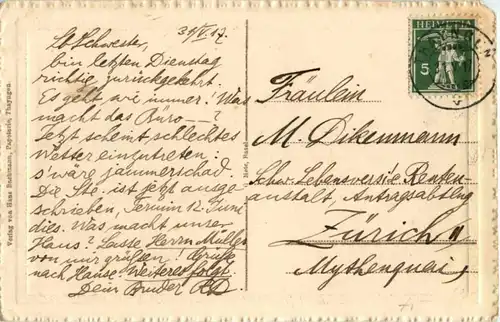 31/V.17.
Lb. Schwester,
bin letzten Dienstag
richtig zurückgekehrt.
Es geht wie immer! Was
macht das Büro --- ?
Jetzt scheint schlechtes
Wetter einzutreten:
s'wäre jammerschad.
Die Ste. ist jetzt ausge-
schrieben, Termin 12. Juni
dies. Was macht unser
Haus? Lasse Herrn Müller
von mir grüßen! Grüße
nach Hause. Weiteres folgt.
Dein Bruder
HELVETIA
5
Fräulein
M. Dikenmann
Schw. Lebensvers. & Renten-
anstalt, Antragsabtlg
Zürich II
Mythenquai
Verlag von Hans Bachmann, Papeterie, Thayngen.